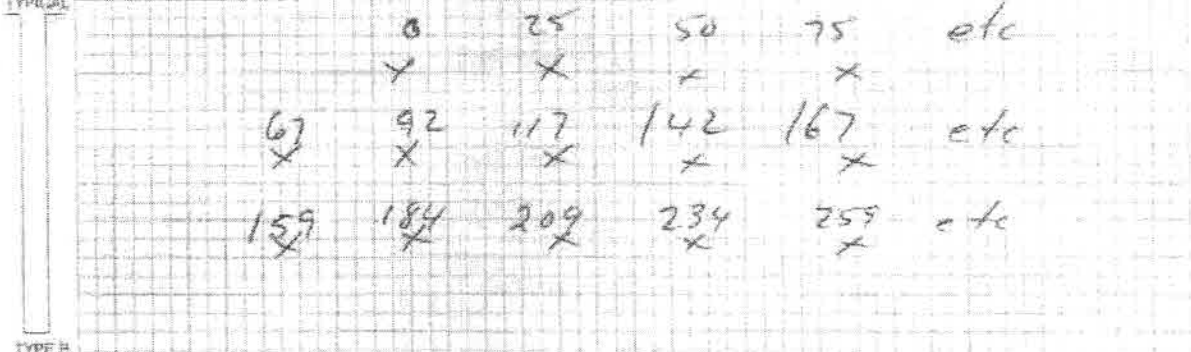 TYPICAL
0 25 50 75 etc
x x x x
67 92 117 142 167 etc
x x x x x
159 184 209 234 259 etc
x x x x x
TYPE H